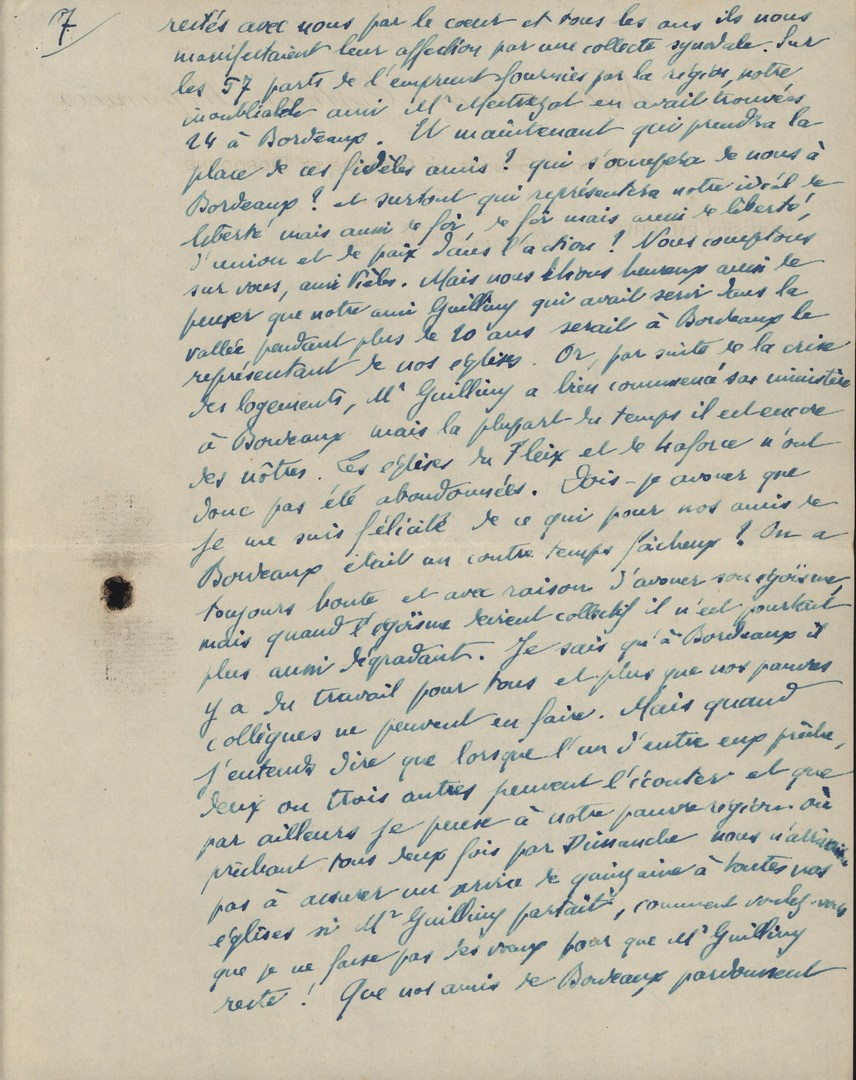 7
restés avec nous par le cœur et tous les ans ils nous
manifestaient leur affection par une collecte synodale. Sur
les 57 parts de l'emprunt fournies par la région, notre
inoubliable ami Mr en avait trouvées
24 à Bordeaux. Et maintenant qui prendra la
place de ces fidèles amis ? qui s'occupera de nous à
Bordeaux ? et surtout qui représentera notre idéal de
liberté mais aussi de foi, de foi mais aussi de liberté,
d'union et de paix dans l'action ? Nous comptons
sur vous, ami . Mais nous étions heureux aussi de
penser que notre ami Guilliny qui avait servi dans la
vallée pendant plus de 20 ans serait à Bordeaux le
représentant de nos églises. Or, par suite de la crise
des logements, Mr Guilliny a bien commencé son ministère
à Bordeaux mais la plupart du temps il est encore
des nôtres. Les églises du Fleix et de Laforce n'ont
donc pas été abandonnées. Dois-je avouer que
je me suis félicité de ce qui pour nos amis de
Bordeaux était un contre temps fâcheux ? On a
toujours honte et avec raison d'avouer son égoïsme,
mais quand l'égoïsme devient collectif il n'est pourtant
plus aussi dégradant. Je sais qu'à Bordeaux il
y a du travail pour tous et plus que nos pauvres
collègues ne peuvent en faire. Mais quand
j'entends dire que lorsque l'un d'entre eux prêche,
deux ou trois autres peuvent l'écouter et que
par ailleurs je pense à notre pauvre région où
prêchant tous deux fois par Dimanche nous n'arrivons
pas à assurer un service de quinzaine à toutes nos
églises si Mr Guilliny partait, comment voulez-vous
que je ne fasse pas des vœux pour que Mr Guilliny
reste ! Que nos amis de Bordeaux pardonnent